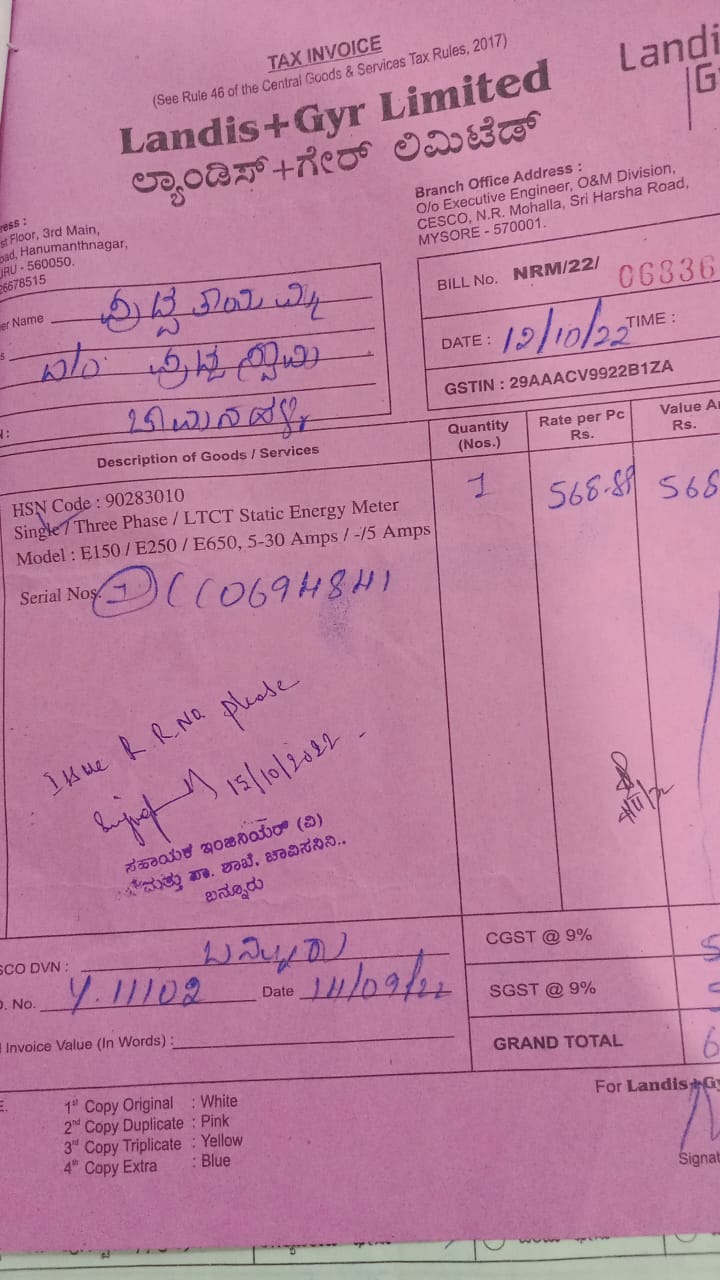 TAX INVOICE
(See Rule 46 of the Central Goods & Services Tax Rules, 2017)
Landi
G
Landis+Gyr Limited
ಲ್ಯಾಂಡಿಸ್+ಗೇರ್ ಲಿಮಿಟೆಡ್
ress :
st Floor, 3rd Main,
oad, Hanumanthnagar,
URU - 560050.
26678515
Branch Office Address :
O/o Executive Engineer, O&M Division,
CESCO, N.R. Mohalla, Sri Harsha Road,
MYSORE - 570001.
BILL No. NRM/22/ 06836
er Name
s
DATE : 12/10/22 TIME :
GSTIN : 29AAACV9922B1ZA
Description of Goods / Services
Quantity (Nos.)
Rate per Pc Rs.
Value A Rs.
HSN Code : 90283010
Single / Three Phase / LTCT Static Energy Meter
Model : E150 / E250 / E650, 5-30 Amps / -/5 Amps
1 568.89 568
Serial Nos. 1 CC0694841
Issue R.R.No please
15/10/2022
ಸಹಾಯಕ ಇಂಜಿನಿಯರ್ (ವಿ)
ಮತ್ತು ಪಾ. ಶಾಖೆ, ಚಾವಿಸನಿನಿ..
ಬನ್ನೂರು
SCO DVN : ಬನ್ನೂರು
CGST @ 9% 5
O. No. Y.11102 Date 14/09/22
SGST @ 9% 5
l Invoice Value (In Words) :
GRAND TOTAL 6
E.
1st Copy Original : White
2nd Copy Duplicate : Pink
3rd Copy Triplicate : Yellow
4th Copy Extra : Blue
For Landis+Gy
Signat